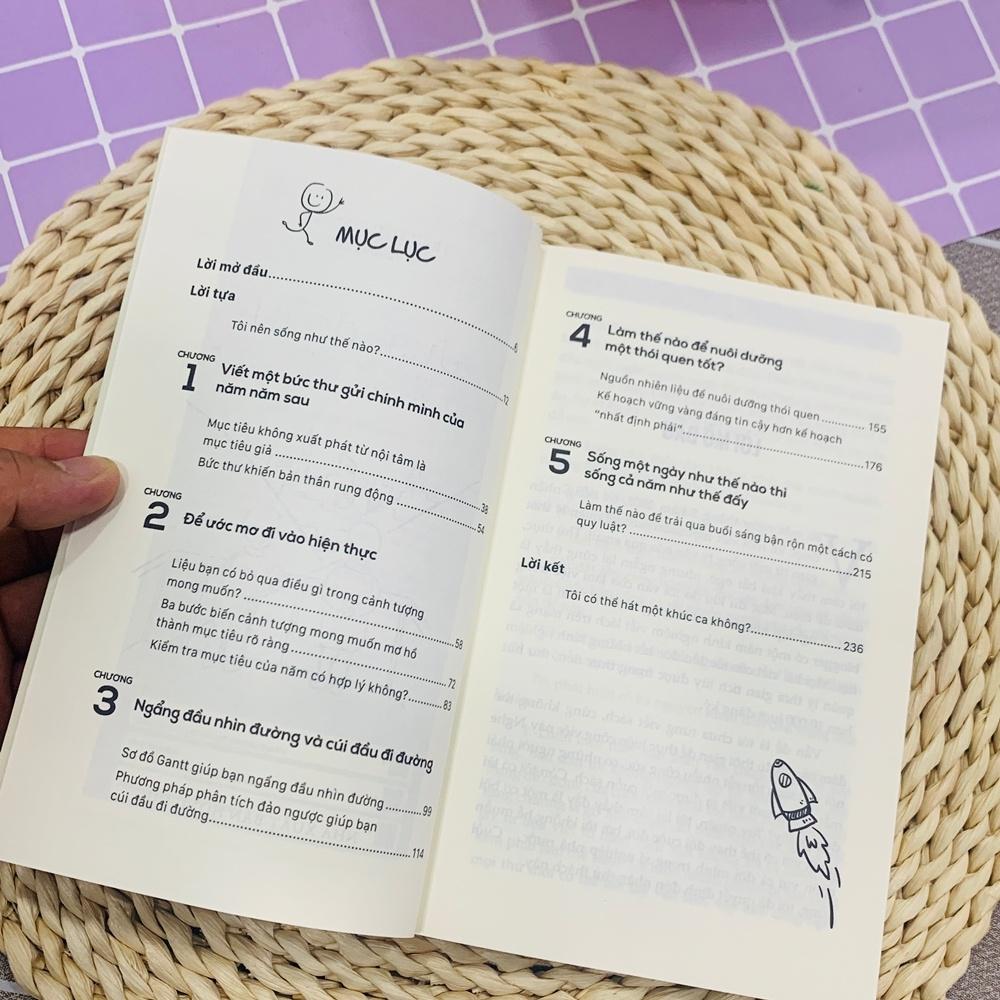 MỤC LỤC
Lời mở đầu........................................6
Lời tựa
Tôi nên sống như thế nào?........................12
CHƯƠNG
1
Viết một bức thư gửi chính mình của
năm năm sau
Mục tiêu không xuất phát từ nội tâm là
mục tiêu giả........................................38
Bức thư khiến bản thân rung động....................54
CHƯƠNG
2
Để ước mơ đi vào hiện thực
Liệu bạn có bỏ qua điều gì trong cảnh tượng
mong muốn?........................................58
Ba bước biến cảnh tượng mong muốn mơ hồ
thành mục tiêu rõ ràng..............................72
Kiểm tra mục tiêu của năm có hợp lý không?..........83
CHƯƠNG
3
Ngẩng đầu nhìn đường và cúi đầu đi đường
Sơ đồ Gantt giúp bạn ngẩng đầu nhìn đường..........99
Phương pháp phân tích đảo ngược giúp bạn
cúi đầu đi đường....................................114
CHƯƠNG
4
Làm thế nào để nuôi dưỡng
một thói quen tốt?
Nguồn nhiên liệu để nuôi dưỡng thói quen............155
Kế hoạch vững vàng đáng tin cậy hơn kế hoạch
“nhất định phải”....................................176
CHƯƠNG
5
Sống một ngày như thế nào thì
sống cả năm như thế đấy
Làm thế nào để trải qua buổi sáng bận rộn một cách có
quy luật?..........................................215
Lời kết
Tôi có thể hát một khúc ca không?...................236